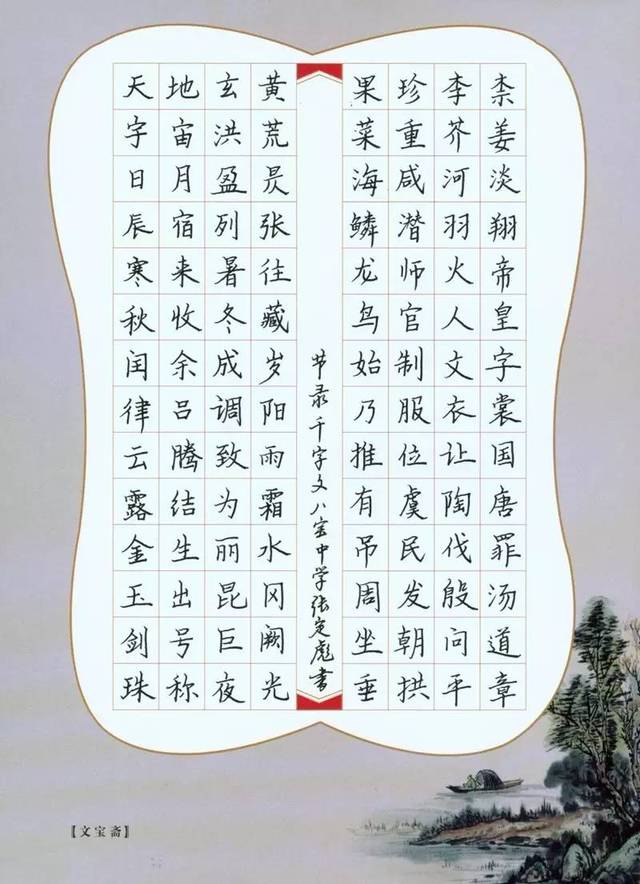 天地玄黄
宇宙洪荒
日月盈昃
辰宿列张
寒来暑往
秋收冬藏
闰余成岁
律吕调阳
云腾致雨
露结为霜
金生丽水
玉出昆冈
剑号巨阙
珠称夜光
果珍李柰
菜重芥姜
海咸河淡
鳞潜羽翔
龙师火帝
鸟官人皇
始制文字
乃服衣裳
推位让国
有虞陶唐
吊民伐罪
周发殷汤
坐朝问道
垂拱平章
节录千字文八宝中学张定彪书
【文宝斋】